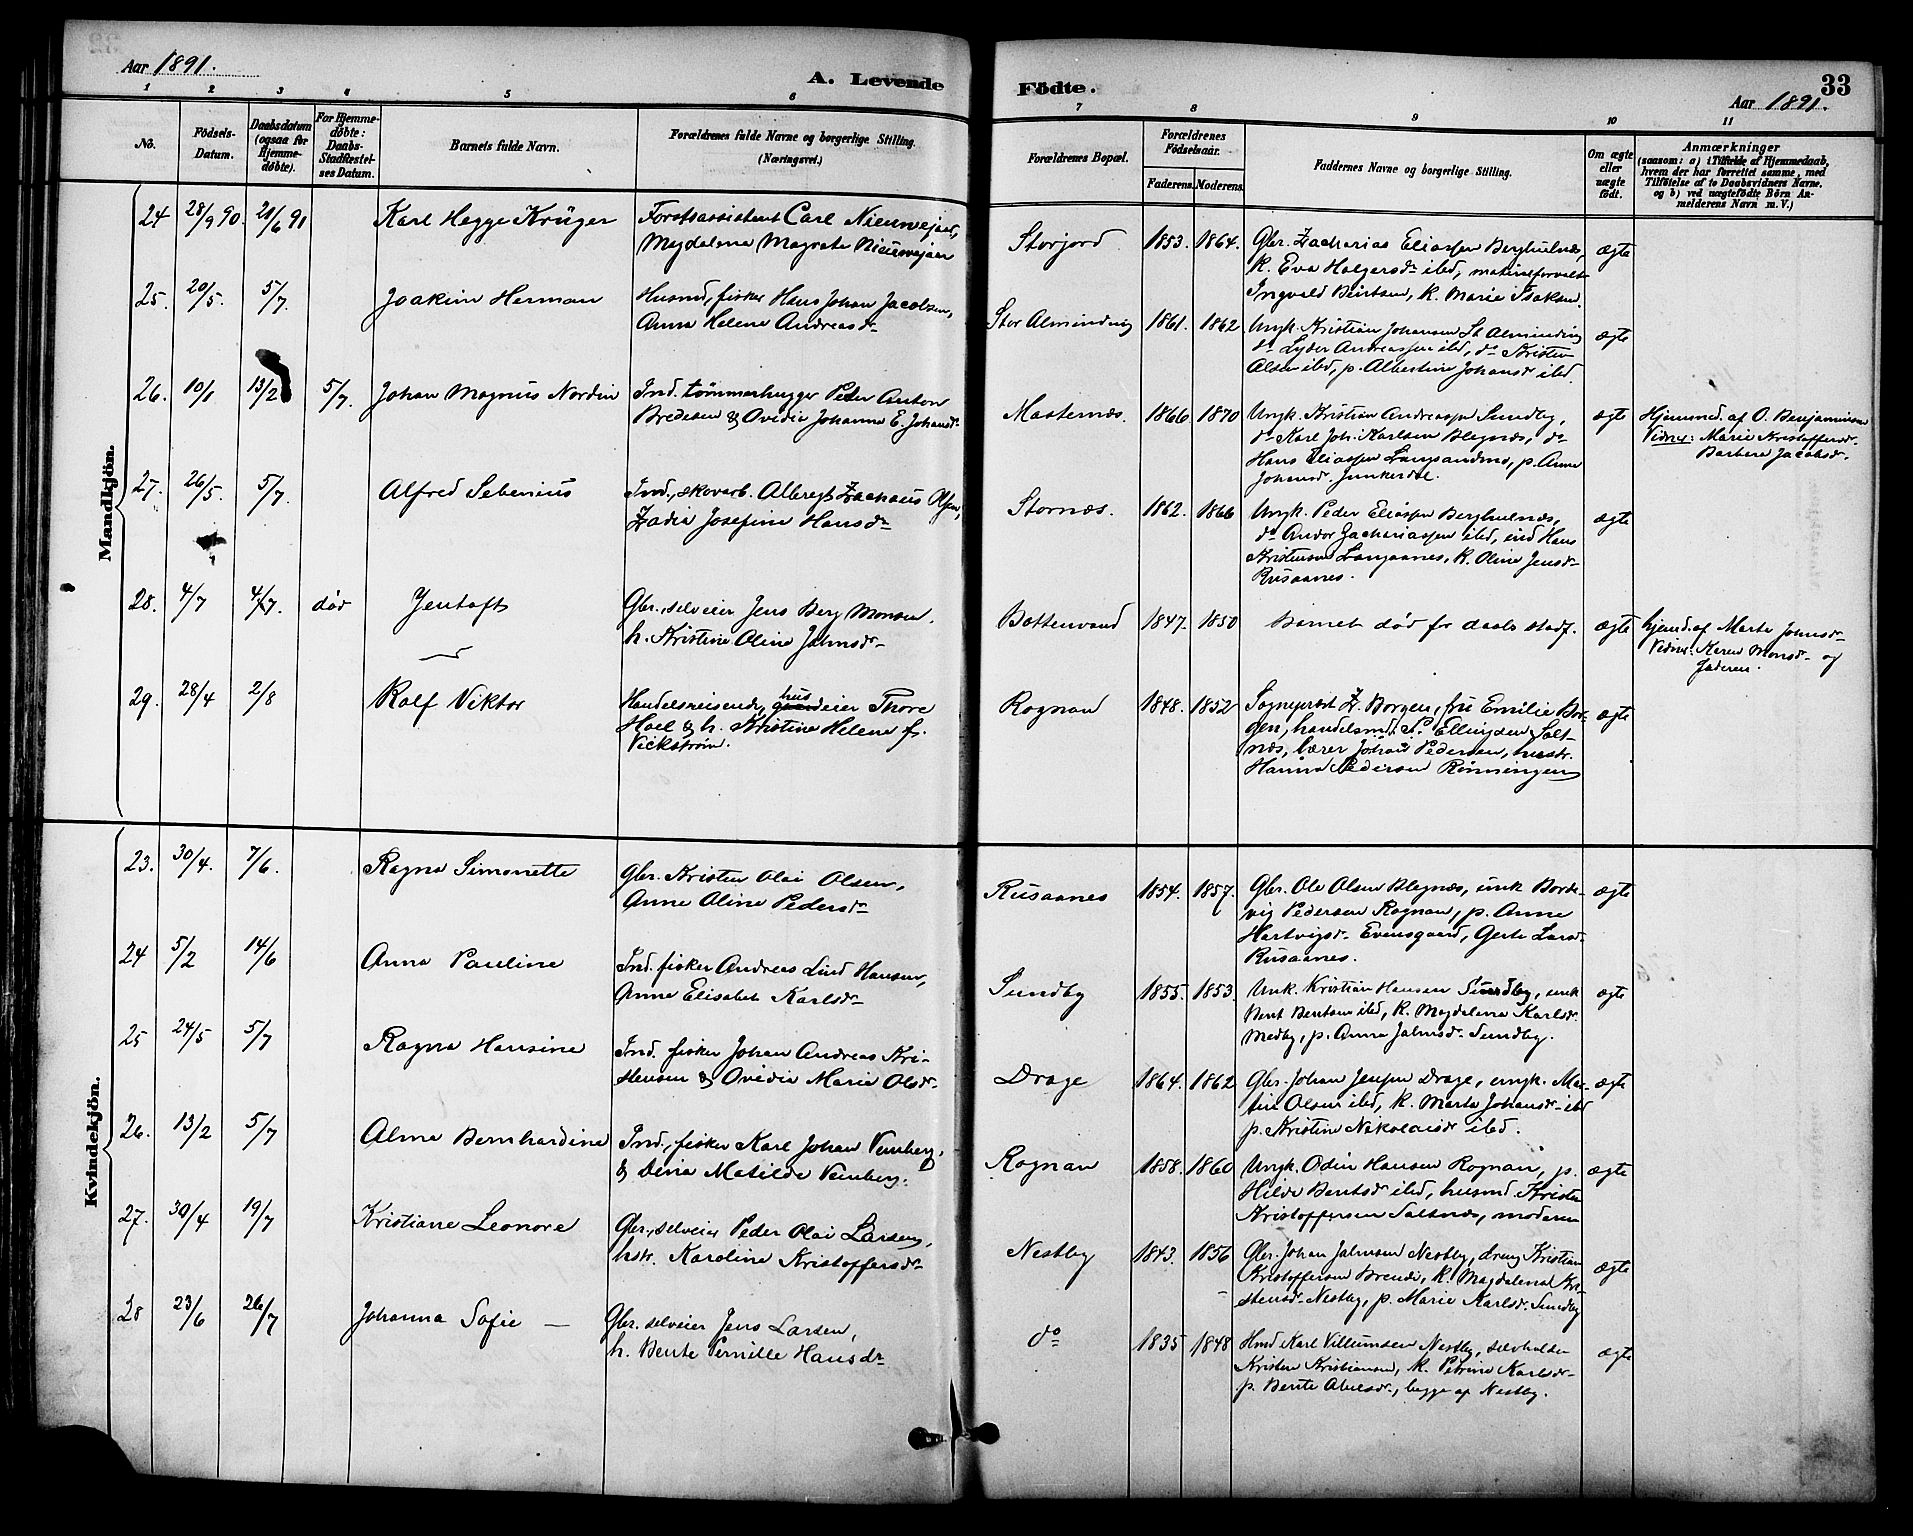 Aar 1891.
A. Levende
Födte.
33
Aar 1891.
1 2 3 4 5 6
7 8 9 10 11
No.
Födsels-Datum.
Daabsdatum (ogsaa for Hjemmedöbte).
For Hjemmedöbte: Daabs-Stadfæstelses Datum.
Barnets fulde Navn.
Forældrenes fulde Navne og borgerlige Stilling. (Næringsvei.)
Forældrenes Bopæl.
Forældrenes Födselsaar.
Faderens. Moderens.
Faddernes Navne og borgerlige Stilling.
Om ægte eller uægte födt.
Anmærkninger
(saasom: a) i Tilfælde af Hjemmedaab, hvem der har forrettet samme, med Tilföielse af to Daabsvidners Navne, og b) ved uægtefödte Börn Anmelderens Navn m. V.)
Mandkjön.
24 28/9 90. 21/6 91 Karl Hegge Krüger
Forstassistent Carl Nieuwejaar,
Magdalena Magrete Nieuwejaar
Storjord. 1853. 1864.
Gbr. Zacharias Eliassen Berghulnæs,
K. Eva Holgersdr ibd, 
Ingvald Bentsen, K. Marie Isaksen.
ægte
25. 20/5. 5/7. Joakim Herman
Husmd, fisker Hans Johan Jacobsen,
Anna Helene Andreasdr
Stor Alminding 1861. 1862
Ungk. Kristian Johansen St. Alminding
do Lyder Andreassen ibd, do Kristen
Olsen ibd, p. Albertine Johansdr ibd.
ægte
26. 10/1 13/2 5/7. Johan Magnus Nordin
Ind. tømmerhugger Peder Anton
Bredesen & Ovidia Johanna E. Johansdr
Masternæs. 1866 1870
Ungk. Kristian Andreassen Sundby,
do Karl Joh. Karlsen Blegnæs, do
Hans Eliassen Langsandmo, p. Anne
Johansd. Junkerdal.
ægte
Hjemmed. af O. Benjaminsen
Vidner: Marie Kristoffersdr.
Barbera Jacobsdr.
27. 26/5. 5/7. Alfred Sebenius
Ind., skovarb. Albregt Zachæus Olsen,
Zadia Josefine Hansdr
Stornæs. 1862. 1866
Ungk. Peder Eliassen Berghulnæs,
do Andor Zachariassen ibd, ind Hans
Kristensen Langaanes, K. Oline Jensdr
Rusaanes.
ægte
28. 4/7 4/7. død Jentoft
Gbr., selveier Jens Berg Monsen.
h. Kristine Oline Johnsdr
Bottenvand 1847. 1850
Barnet død før daabs stadf.
ægte
hjemd. af Marta Johnsdr
Vidner: Karen Monsdr og
faderen.
29. 28/4 2/8 Rolf Viktor
Handelsreisende, hus eier Thore
Hoel & h. Kristine Helene f.
Vickstrøm.
Rognan 1848. 1852
Sogneprest Z. Borgen, fru Emilie Bor-
gen, handelsmd. P. Ellingsen Salt-
næs, lærer Johan Pedersen, madr.
Hanna Pedersen Rønningen
ægte
Kvindekjön.
23. 30/4. 7/6. Ragna Simonette
Gbr. Kristen Olai Olsen,
Anne Oline Pedersdr
Rusaanes 1854. 1857.
Gbr. Ole Olsen Blegnæs, unk Borde-
vig Pedersen Rognan, p. Anne
Hartvigsdr Evensgaard, Gerte Larsdr
Rusaanes.
ægte
24 5/2 14/6 Anna Pauline
Ind. fisker Andreas Lind Hansen,
Anne Elisabet Karlsdr
Sundby 1855. 1853.
Unk. Kristian Hansen Sundby, unk
Bent Bentsen ibd, K. Magdalena Karlsdr
Medby, p. Anna Johnsdr Sundby.
ægte
25 24/5 5/7 Ragna Hansine
Ind. fisker Johan Andreas Kri-
stensen & Ovidia Marie Olsdr
Drage 1864. 1862
Gbr. Johan Jensen Drage, ungk. Mar-
tin Olsen ibd, K. Marta Johansdr ibd
p. Kristine Nikolaisdr ibd.
ægte
26. 13/2 5/7 Alma Bernhardine
Ind., fisker Karl Johan Venberg,
& Dina Matilde Venberg.
Rognan 1858. 1860
Ungk. Odin Hansen Rognan, p.
Hilda Bentsdr ibd, husmd Kristen
Kristoffersen Saltnæs, moderen
ægte
27. 30/4 19/7 Kristiane Leonore
Gbr., selveier Peder Olai Larsen,
hstr. Karoline Kristoffersdr
Nestby 1843. 1856
Gbr. Johan Johnsen Nestby, dreng Kristian
Kristoffersen Brende, K. Magdalena Kri-
stensdr Nestby, p. Marie Karlsdr Sundby
ægte
28 23/6 26/7 Johanna Sofie
Gbr. selveier Jens Larsen,
h. Bente Pernille Hansdr
do 1835 1848
Hmd Karl Villumsen Nestby, selvholder
Kristen Kristiansen, K. Petrine Karlsdr
p. Bente Abelsdr, begge af Nestby.
ægte